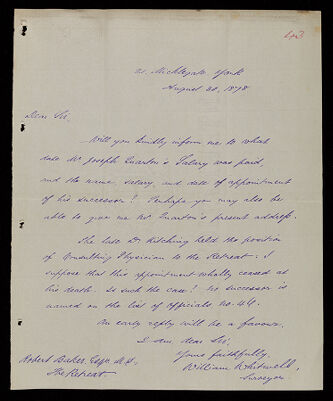 20. Micklegate York
August 20, 1878
Dear Sir,
Will you kindly inform me to what
date Mr Joseph Quarton's Salary was paid,
and the name, salary, and date of appointment
of his successor? Perhaps you may also be
able to give me Mr Quarton's present address.
The late Dr Kitching held the position
of Consulting Physician to the Retreat. I
suppose that this appointment wholly ceased at
his death. Is such the case? No successor is
named on the list of officials No. 46.
An early reply will be a favour.
I am dear Sir,
Yours faithfully,
William Whitwell,
Surveyor
Robert Baker, Esqr M.D.,
The Retreat